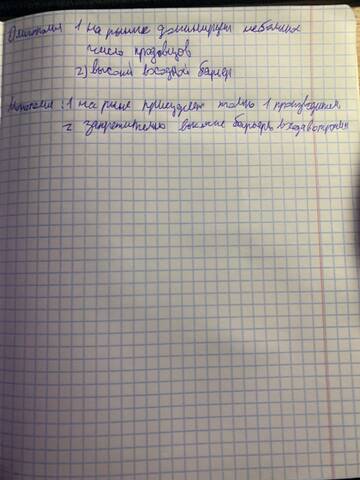 Олигополия 1 на рынке доминирует небольших
число продавцов
2) высокий входной барьер
Монополия : 1 на рынке присуцдвет только 1 производитель
2 запретительно высокие барьеры входа в отрасль